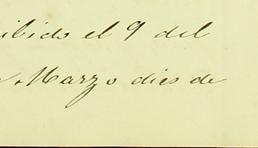 ibido el 9 del
Marzo dies de